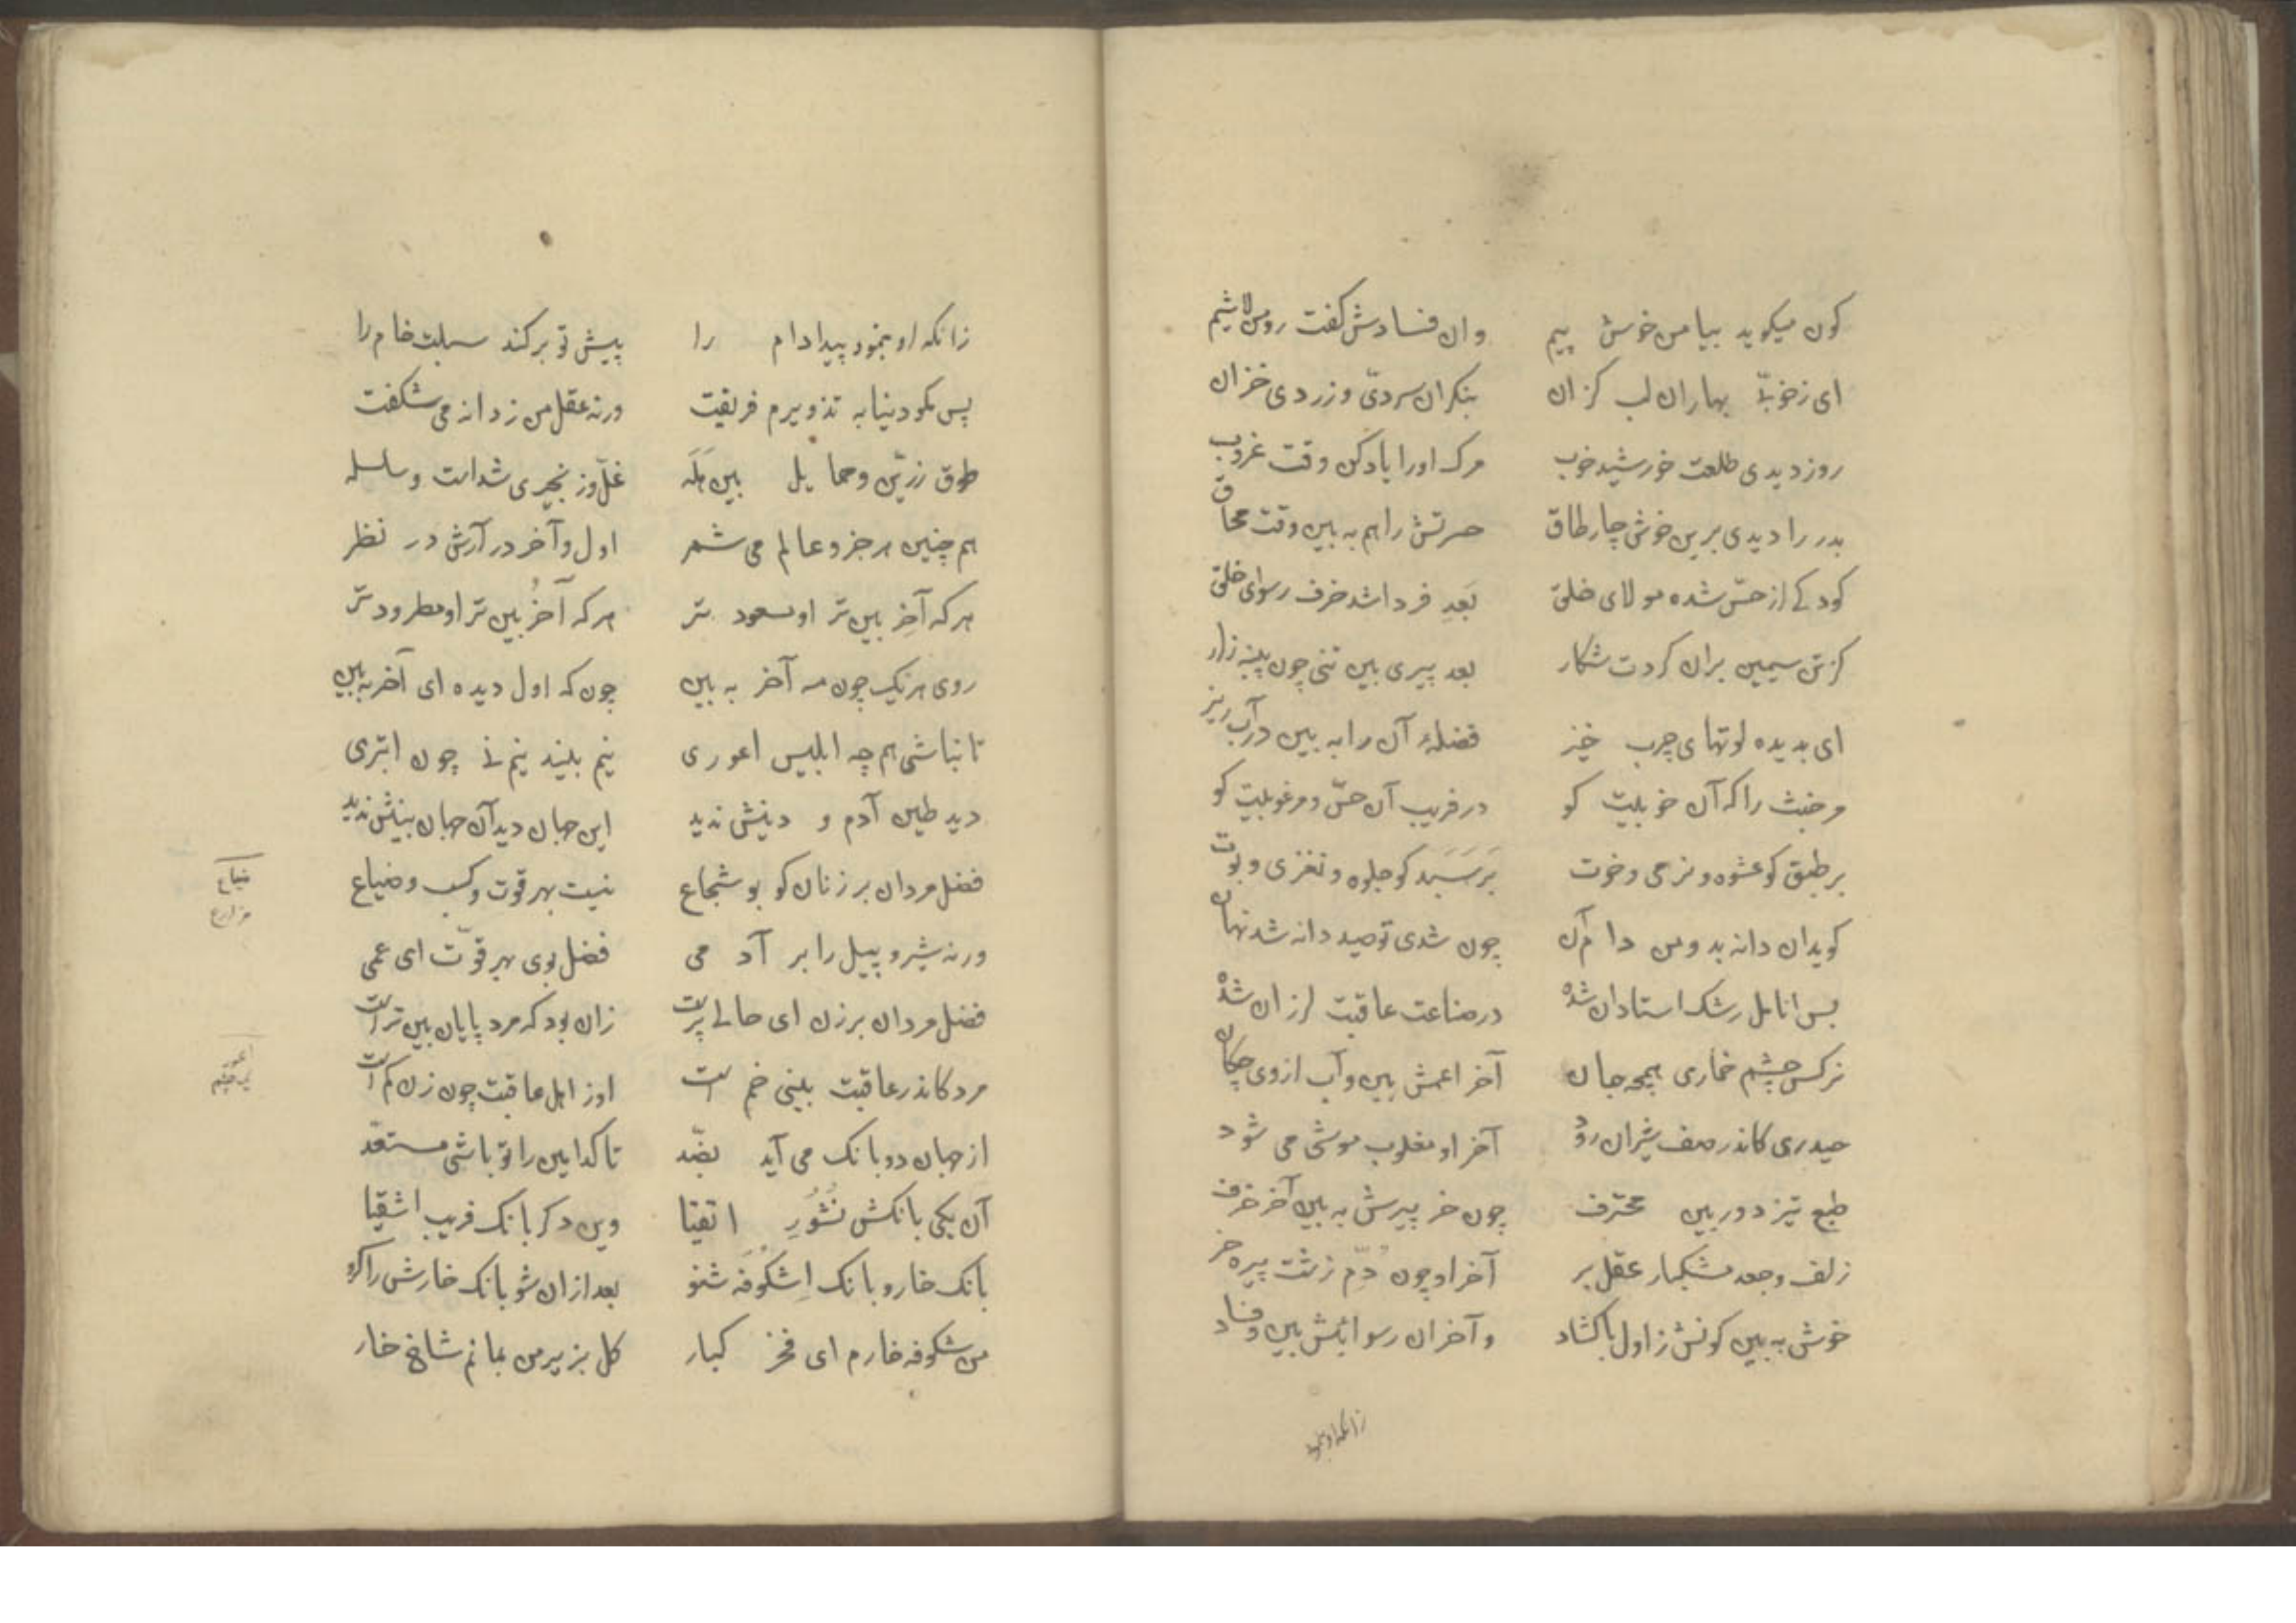 کون میکوید بیا من خوش پیم وان فسادش کفت رو من لاشیم
ای ز خوبیّ بهاران لب کزان بنکر ان سردیّ و زردی خزان
روز دیدی طلعت خورشید خوب مرک اورا یاد کن وقت غروب
بدر را دیدی برین خوش چار طاق حسرتش را هم به بین وقت محاق
کودکے از حسّن شده مولای خلق بَعدِ فردا شد خرف رسوای خلق
کر تن سیمین بران کردت شکار بعد پیری بین تنی چون پنبه زار
ای بدیده لوتهای چرب خیز فضلهٔ آن را به بین در آب ریز
مر خبث را که آن خوبیت کو در فریب آن حسّن و مرغوبیت کو
بر طبق کو عشوه و نرمی و خوت بَر سَبَد کو جلوه و نغزی و بوت
کوید ان دانه بد و من دام آن چون شدی تو صید دانه شد نهان
بس انامل رشک استادان شده در صناعت عاقبت لرزان شده
نرکس چشم خماری همچه جان آخر اعمش بین و آب ازوی چکان
حیدری کاندر صف شیران رود آخر او مغلوب موشی می شود
طبع تیز دوربین محترف چون خر پیرش به بین آخر خرف
زلف و جعد مشکبار عقل بر آخر او چون دُمّ زشت پیره خر
خوش به بین کونش ز اول باکشاد و آخر ان رسوائیش بین و فساد
زانکه او بنمود
زانکه او بنمود پیدا دام را پیش تو برکند سبلت خام را
پس مکو دنیا به تذویرم فریفت ورنه عقل من ز دانه می شکفت
طوق زریّن و حمایل بین هَلَه غلّ و زنجیری شداست و سلسله
هم چنین هر جزو عالم می شمر اول و آخر در آرش در نظر
هر که آخِر بین تر او مسعود تر هر که آخُر بین تر او مطرود تر
روی هر یک چون مه آخر به بین چون که اول دیده ای آخر به بین
تا نباشی هم چه ابلیس اعوری نیم بیند نیم نے چون ابتری
دید طین آدم و دینش ندید این جهان دید آن جهان بینش ندید
فضل مردان بر زنان کو بو شجاع نیست بهر قوت و کسب و ضیاع
ورنه شیر و پیل را بر آد می فضل بوی بهر قوّت ای عمی
فضل مردان بر زن ای حالے پرست زان بود که مرد پایان بین تر است
مرد کاندر عاقبت بینی خم است او ز اهل عاقبت چون زن کم است
از جهان دو بانک می آید بضّد تا کدامین را تو باشی مستعّد
آن یکی بانکش نُشُورِ اتقیا وین دکر بانک فریب اشقیا
بانک خار و بانک اِشکُوفَه شنو بعد ازان شو بانک خارش را کرو
من شکوفه خارم ای فخر کبار کل بزیر من بمانم شاخ خار
ضیاع
مزارع
اعور
یک چشم